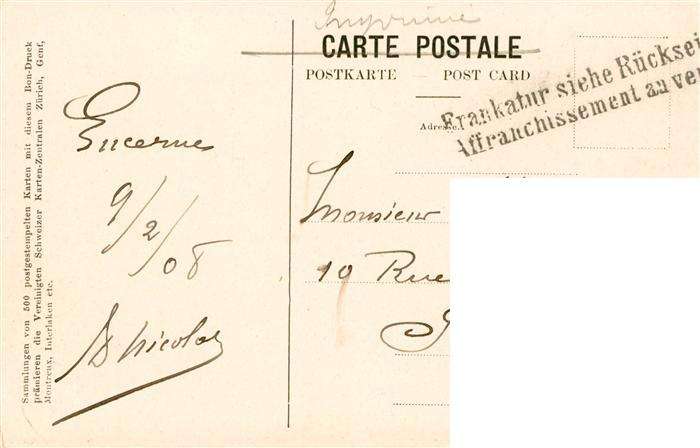 Imprimé
CARTE POSTALE
POSTKARTE — POST CARD
Frankatur siehe Rücksei
Affranchissement au ver
Adresse.
Lucerne
9/2/08
Monsieur
10 Rue
Sammlungen von 500 postgestempelten Karten mit diesem Bon-Druck
prämieren die Vereinigten Schweizer Karten-Zentralen Zürich, Genf,
Montreux, Interlaken etc.